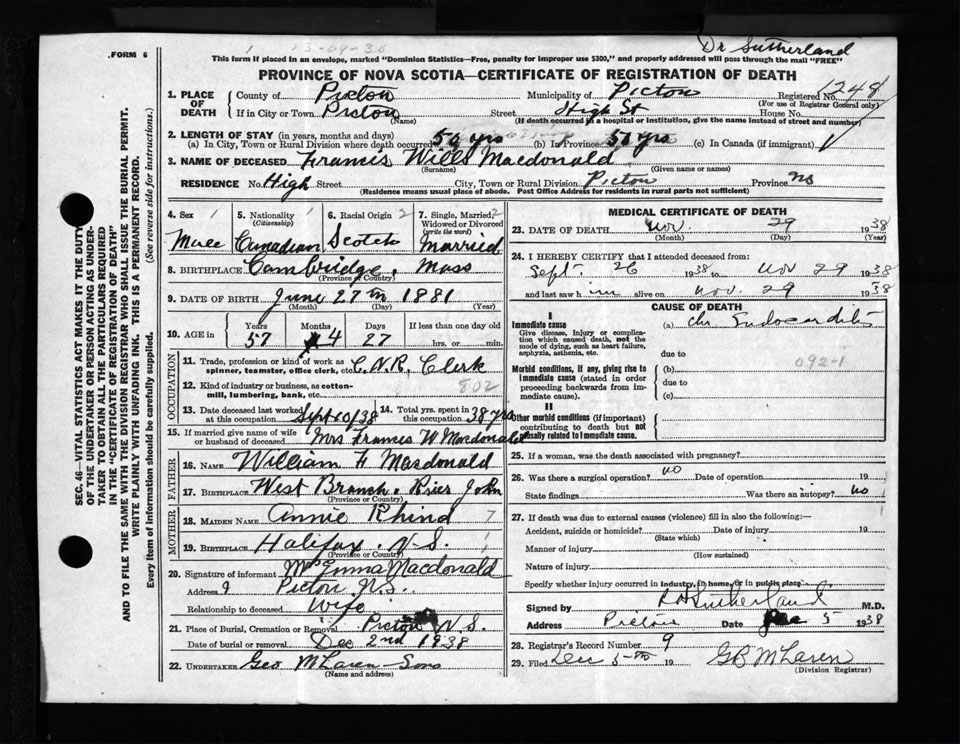 FORM 6
1 13-09-30
Dr Sutherland
This form if placed in an envelope, marked "Dominion Statistics—Free, penalty for improper use $300," and properly addressed will pass through the mail "FREE"
PROVINCE OF NOVA SCOTIA—CERTIFICATE OF REGISTRATION OF DEATH
1. PLACE OF DEATH
County of Pictou Municipality of Pictou Registered No. 1248
(For use of Registrar General only)
If in City or Town Pictou Street High St House No.
(Name) (If death occurred in a hospital or institution, give the name instead of street and number)
2. LENGTH OF STAY (in years, months and days)
(a) In City, Town or Rural Division where death occurred 50 yrs (b) In Province 50 yrs (c) In Canada (if immigrant)
3. NAME OF DECEASED Francis Wills Macdonald
(Surname) (Given name or names)
RESIDENCE No. High Street City, Town or Rural Division Pictou Province NS
(Residence means usual place of abode. Post Office Address for residents in rural parts not sufficient)
SEC. 46—VITAL STATISTICS ACT MAKES IT THE DUTY
OF THE UNDERTAKER OR PERSON ACTING AS UNDER-
TAKER TO OBTAIN ALL THE PARTICULARS REQUIRED
IN THE "CERTIFICATE OF REGISTRATION OF DEATH"
AND TO FILE THE SAME WITH THE DIVISION REGISTRAR WHO SHALL ISSUE THE BURIAL PERMIT.
WRITE PLAINLY WITH UNFADING INK. THIS IS A PERMANENT RECORD.
Every item of information should be carefully supplied. (See reverse side for instructions.)
4. Sex 1 5. Nationality 1 6. Racial Origin 2 7. Single, Married, 2
(Citizenship) Widowed or Divorced
(write the word)
Male Canadian Scotch Married
8. BIRTHPLACE Cambridge, Mass
(Province or Country)
9. DATE OF BIRTH June 27th 1881
(Month) (Day) (Year)
10. AGE in Years Months Days If less than one day old
57 4 27 hrs. or min.
OCCUPATION
11. Trade, profession or kind of work as
spinner, teamster, office clerk, etc. C.N.R. Clerk
12. Kind of industry or business, as cotton-
mill, lumbering, bank, etc. 802
13. Date deceased last worked
at this occupation Sept 10/38
14. Total yrs. spent in
this occupation 38 yrs
15. If married give name of wife
or husband of deceased Mrs Francis W Macdonald
FATHER
16. NAME William H Macdonald
17. BIRTHPLACE West Branch, River John
(Province or Country)
MOTHER
18. MAIDEN NAME Annie Rhind 7
19. BIRTHPLACE Halifax, N.S.
(Province or Country)
20. Signature of informant Mrs Emma Macdonald
Address Pictou N.S.
Relationship to deceased Wife
21. Place of Burial, Cremation or Removal Pictou N.S.
Date of burial or removal Dec 2nd 1938
22. UNDERTAKER Geo McLaren Sons
(Name and address)
MEDICAL CERTIFICATE OF DEATH
23. DATE OF DEATH Nov. 29 1938
(Month) (Day) (Year)
24. I HEREBY CERTIFY that I attended deceased from:
Sept. 26 1938 to Nov 29 1938
and last saw him alive on Nov. 29 1938
CAUSE OF DEATH
I
Immediate cause
Give disease, injury or complica-
tion which caused death, not the
mode of dying, such as heart failure,
asphyxia, asthenia, etc.
(a) Chr Endocarditis
due to
Morbid conditions, if any, giving rise to
immediate cause (stated in order
proceeding backwards from im-
mediate cause).
(b) 092-1
due to
(c)
II
Other morbid conditions (if important)
contributing to death but not
causally related to immediate cause.
25. If a woman, was the death associated with pregnancy?
26. Was there a surgical operation? no Date of operation 19
State findings Was there an autopsy? no
27. If death was due to external causes (violence) fill in also the following:—
Accident, suicide or homicide? Date of injury 19
(State which)
Manner of injury
(How sustained)
Nature of injury
Specify whether injury occurred in industry, in home, or in public place
Signed by R H Sutherland M.D.
Address Pictou Date Dec 5 1938
28. Registrar's Record Number 9
29. Filed Dec 5th 19 GB McLaren
(Division Registrar)